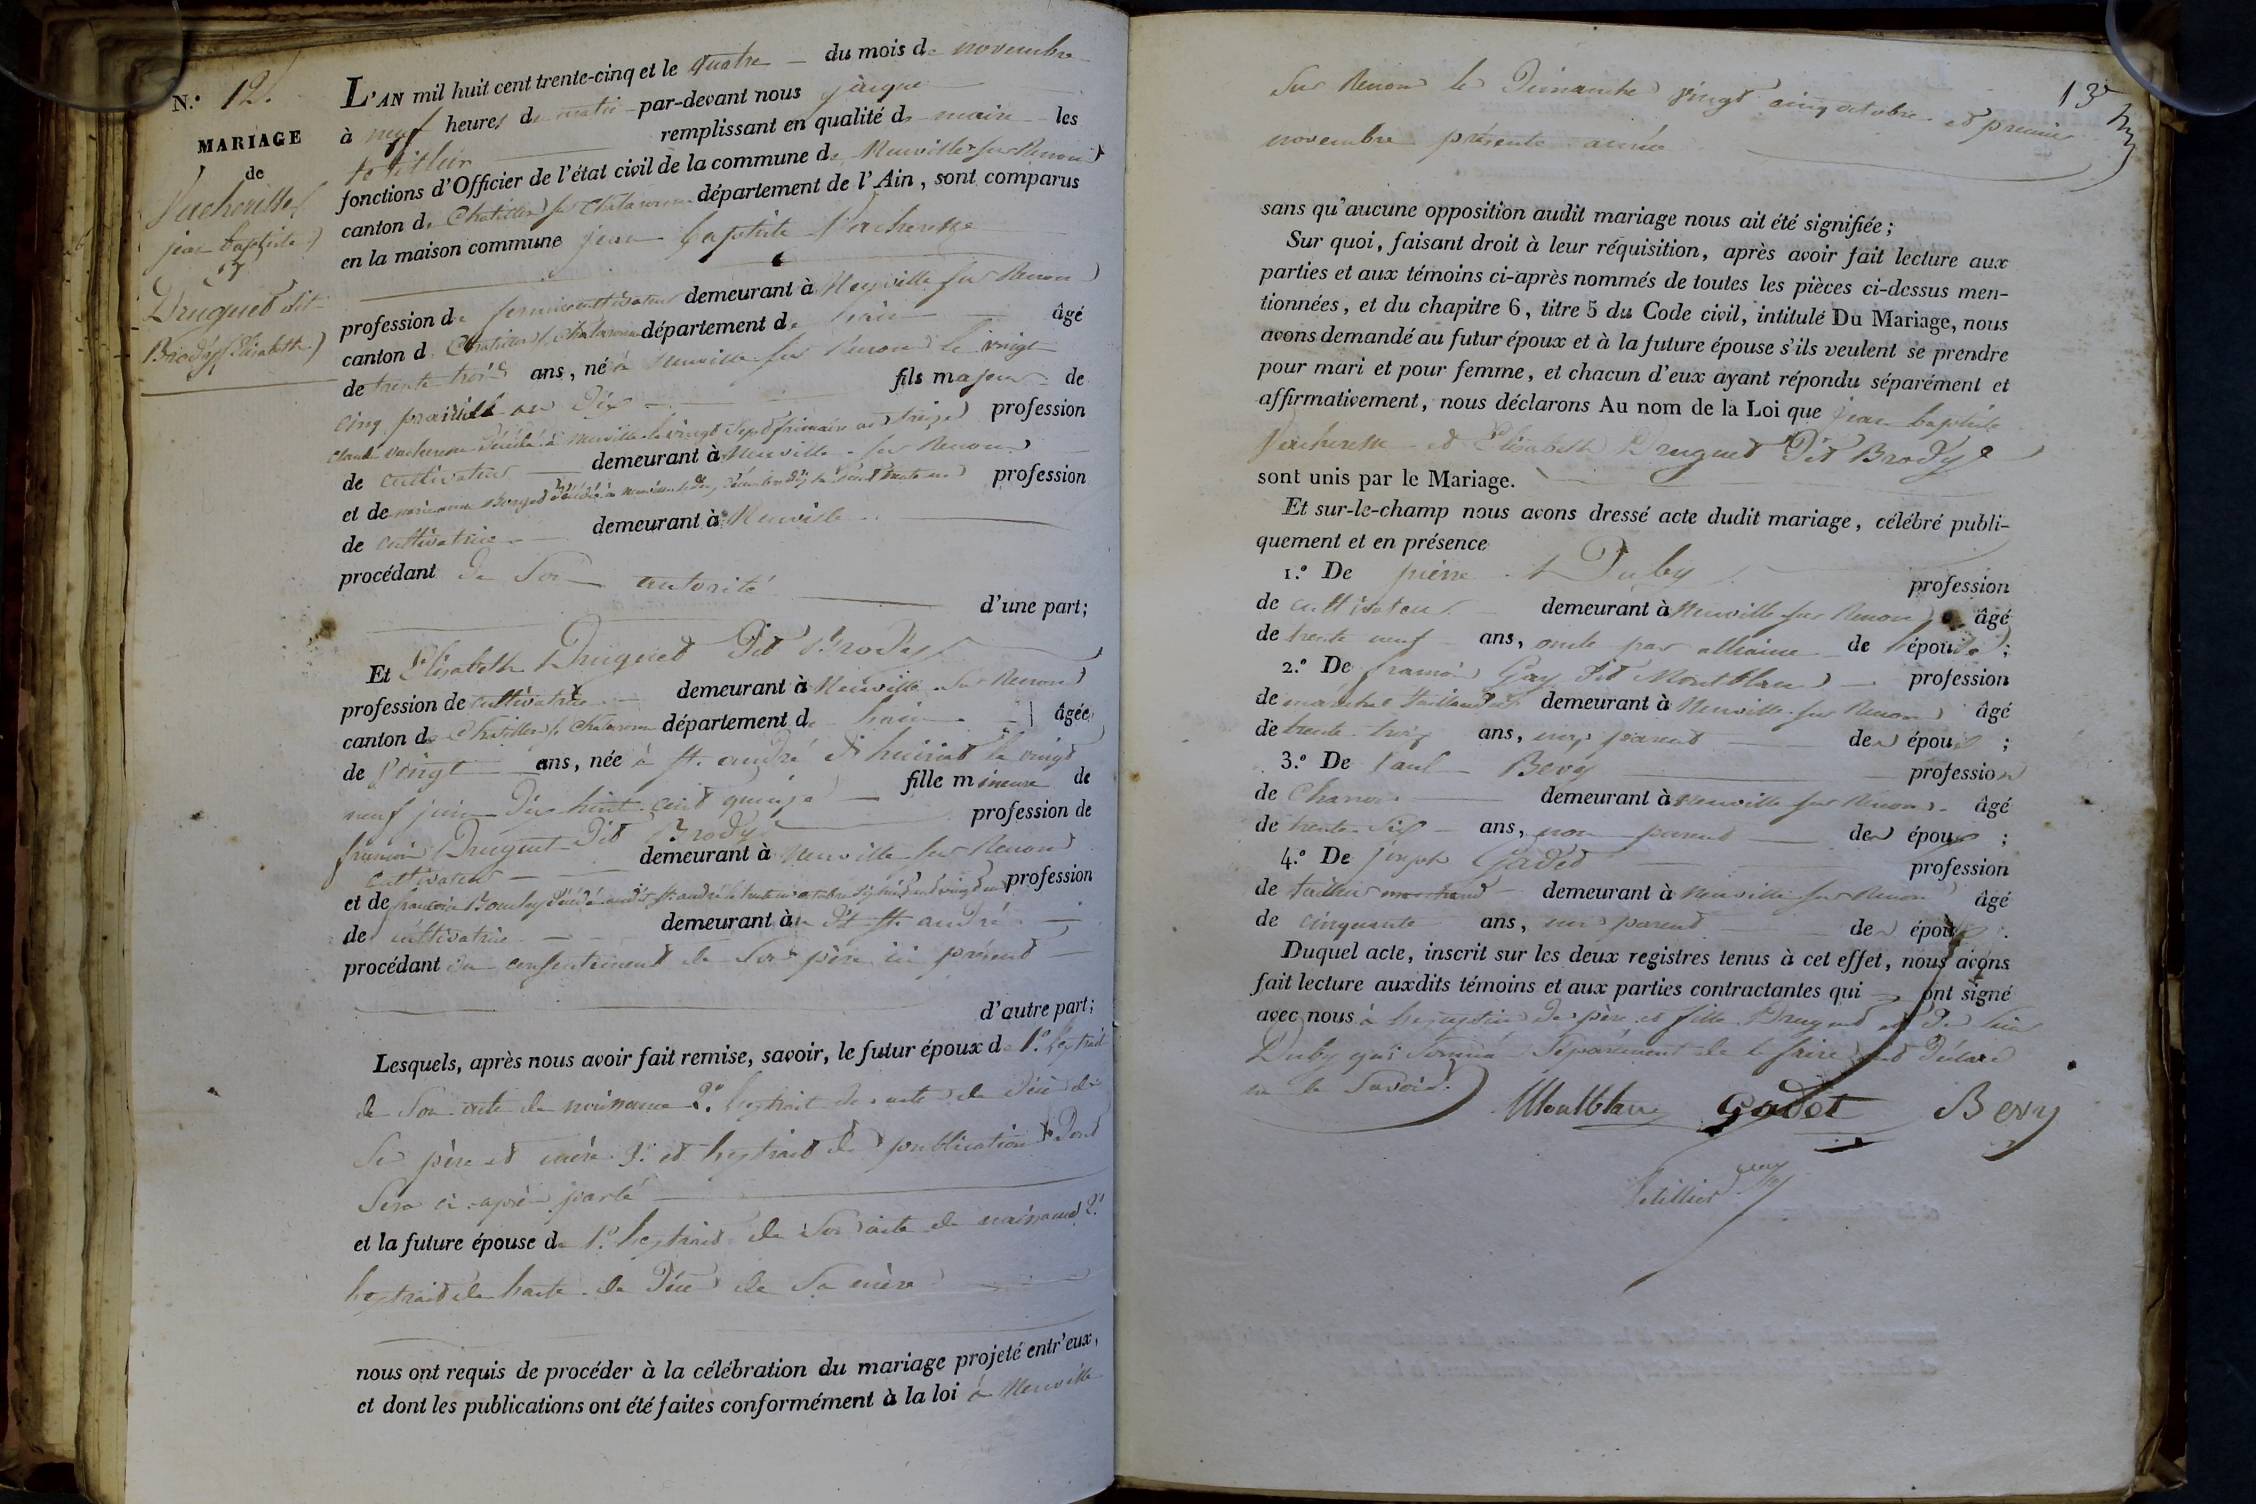 N.º 12.
MARIAGE
de
Vacheresse
jean baptiste
et
Druguet dit
Brody (Elisabeth)
L'AN mil huit cent trente-cinq et le quatre du mois de novembre
à neuf heures du matin par-devant nous jacque
Petillier remplissant en qualité de maire les
fonctions d'Officier de l'état civil de la commune de Neuville sur Renon
canton de Chatillon s. Chalaronne département de l'Ain, sont comparus
en la maison commune jean baptiste Vacheresse
profession de cultivateur demeurant à Neuville sur Renon
canton de Chatillon s. Chalaronne département de l'ain âgé
de trente trois ans, né à Neuville sur Renon le vingt
cinq prairial an dix fils majeur de
Claude Vacheresse décédé à Neuville le vingt sept frimaire an treize profession
de cultivateur demeurant à Neuville sur Renon
et de marianne décédée à profession
de cultivatrice demeurant à Neuville
procédant de son autorité
d'une part;
Et Elisabeth Druguet Dit Brody
profession de cultivatrice demeurant à Neuville sur Renon
canton de Chatillon s. Chalaronne département de l'ain âgée
de vingt ans, née à St. andré d'huiriat le vingt
neuf juin dix huit cent quinze fille mineure de
francois Druguet Dit Brody profession de
cultivateur demeurant à Neuville sur Renon
et de francoise décédée audit St. andré le octobre profession
de cultivatrice demeurant à dt St. andré
procédant du consentement de son père ici présent
d'autre part;
Lesquels, après nous avoir fait remise, savoir, le futur époux de 1.º l'extrait
de son acte de naissance 2.º l'extrait de acte de décé de
ses père et mère 3.º et l'extrait de publication dont
sera ci-après parlé
et la future épouse de 1.º l'extrait de son acte de naissance 2.º
l'extrait de l'acte de décé de sa mère
nous ont requis de procéder à la célébration du mariage projeté entr'eux,
et dont les publications ont été faites conformément à la loi à Neuville
13
sur Renon le Dimanche vingt cinq octobre et premier
novembre présente année
sans qu'aucune opposition audit mariage nous ait été signifiée;
Sur quoi, faisant droit à leur réquisition, après avoir fait lecture aux
parties et aux témoins ci-après nommés de toutes les pièces ci-dessus men-
tionnées, et du chapitre 6, titre 5 du Code civil, intitulé Du Mariage, nous
avons demandé au futur époux et à la future épouse s'ils veulent se prendre
pour mari et pour femme, et chacun d'eux ayant répondu séparément et
affirmativement, nous déclarons Au nom de la Loi que jean baptiste
Vacheresse et Elisabeth Druguet Dit Brody
sont unis par le Mariage.
Et sur-le-champ nous avons dressé acte dudit mariage, célébré publi-
quement et en présence
1.º De pierre Duby profession
de cultivateur demeurant à Neuville sur Renon âgé
de trente neuf ans, oncle par alliance de l'épouse;
2.º De francois Gay Dit Montblanc profession
de maréchal taillandier demeurant à Neuville sur Renon âgé
de trente trois ans, non parent des époux;
3.º De Paul Bevy profession
de Charron demeurant à Neuville sur Renon âgé
de trente six ans, non parent des époux;
4.º De joseph Gadot profession
de tailleur demeurant à Neuville sur Renon âgé
de cinquante ans, non parent des époux.
Duquel acte, inscrit sur les deux registres tenus à cet effet, nous avons
fait lecture auxdits témoins et aux parties contractantes qui ont signé
avec nous à l'exception de père et fille Druguet et de
Duby qui séparément de le faire ont déclaré
ne le savoir.
Montblanc Gadot Bevy
Petillier